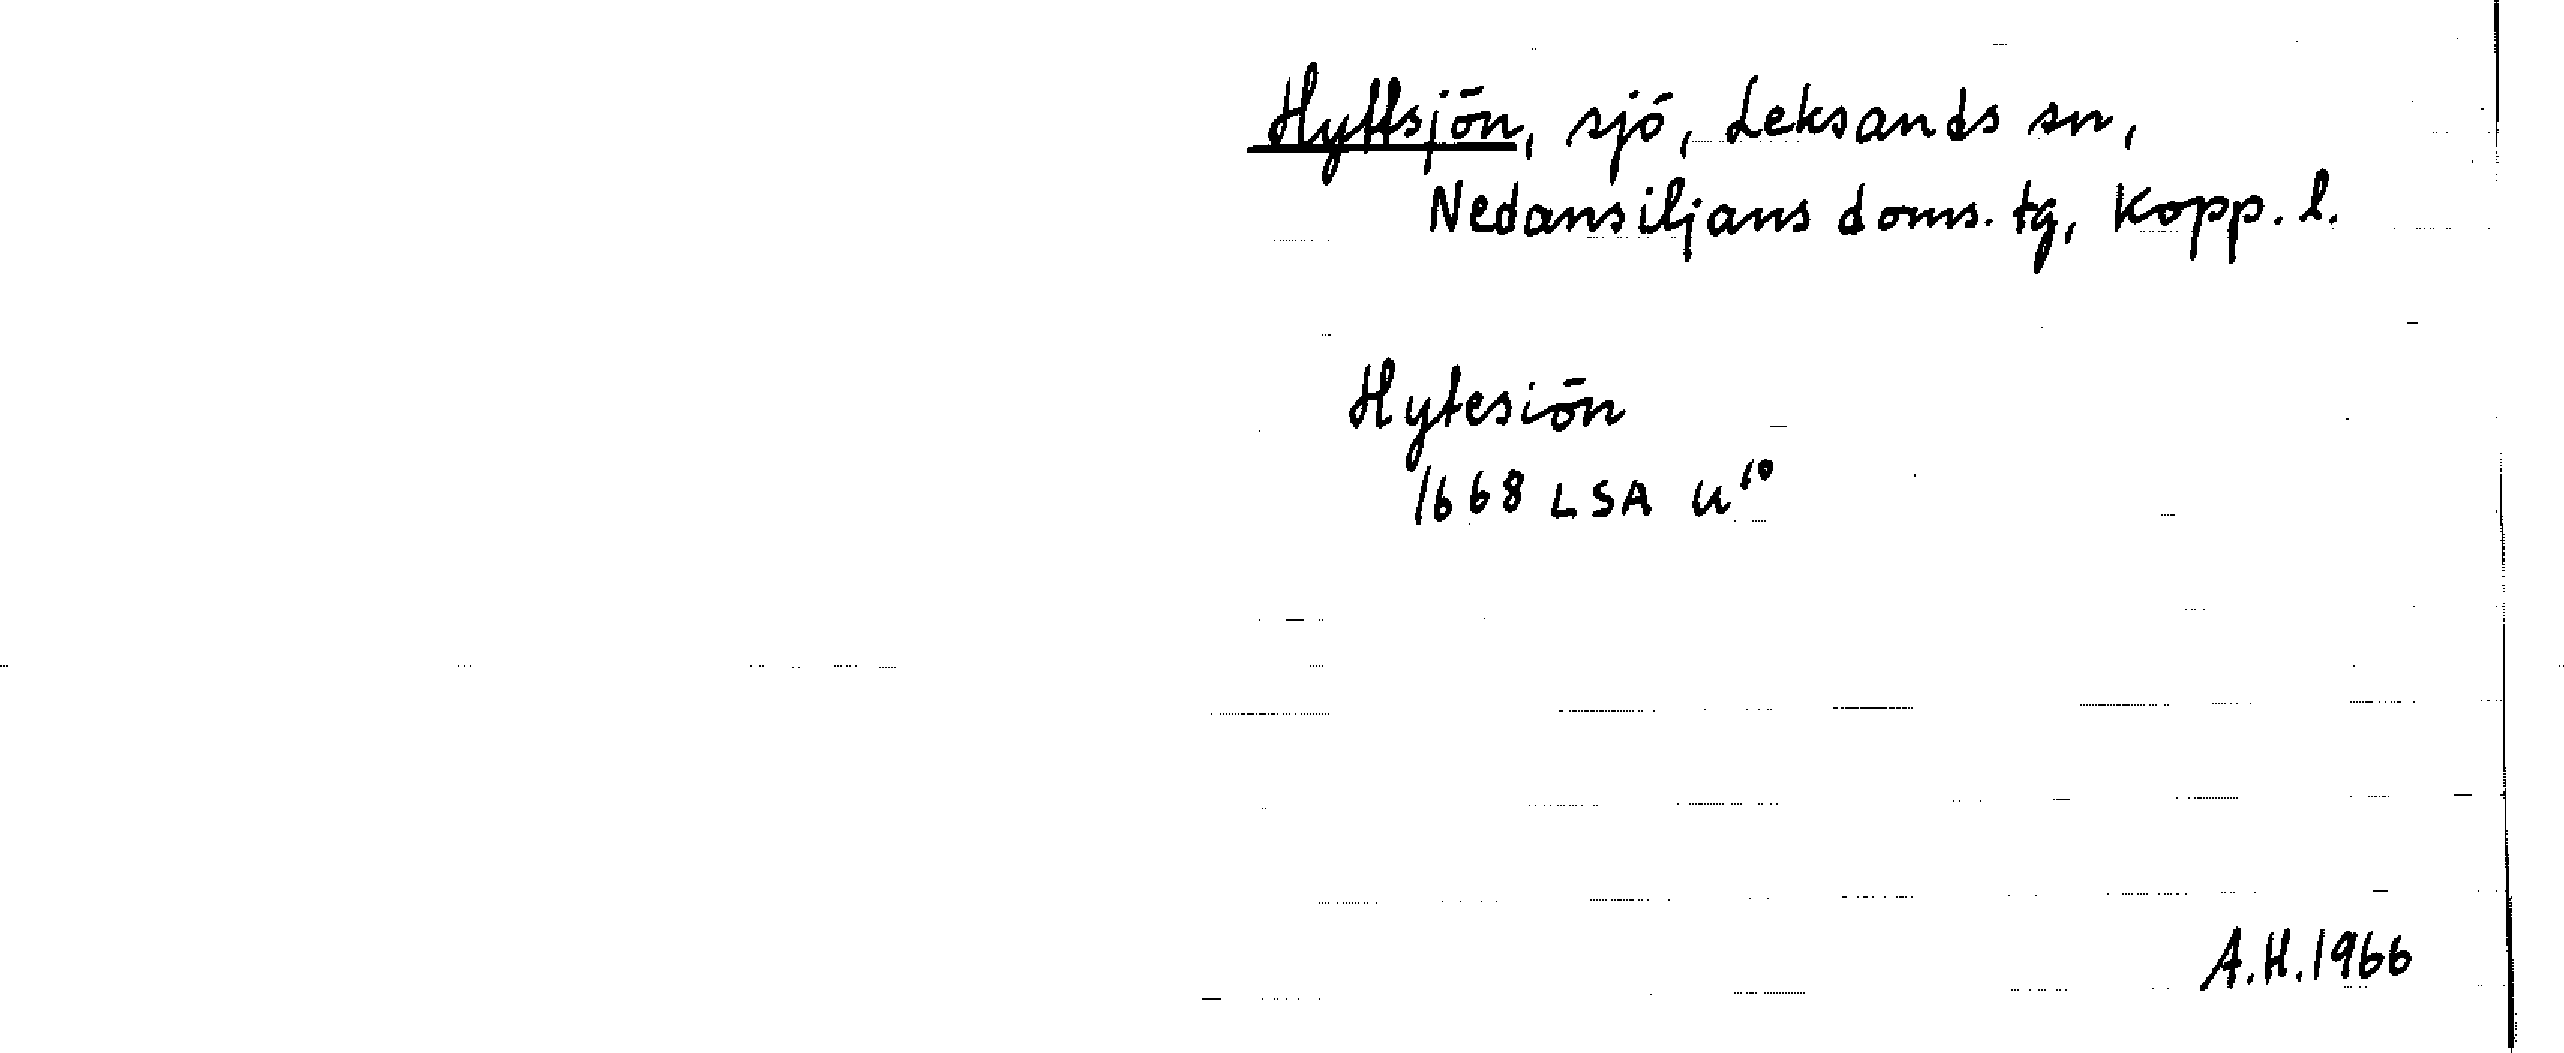 Hyttsjön, sjö, Leksands sn,
Nedansiljans doms. tg, Kopp. l.
Hytesiön
1668 LSA U¹⁰
A.H. 1966